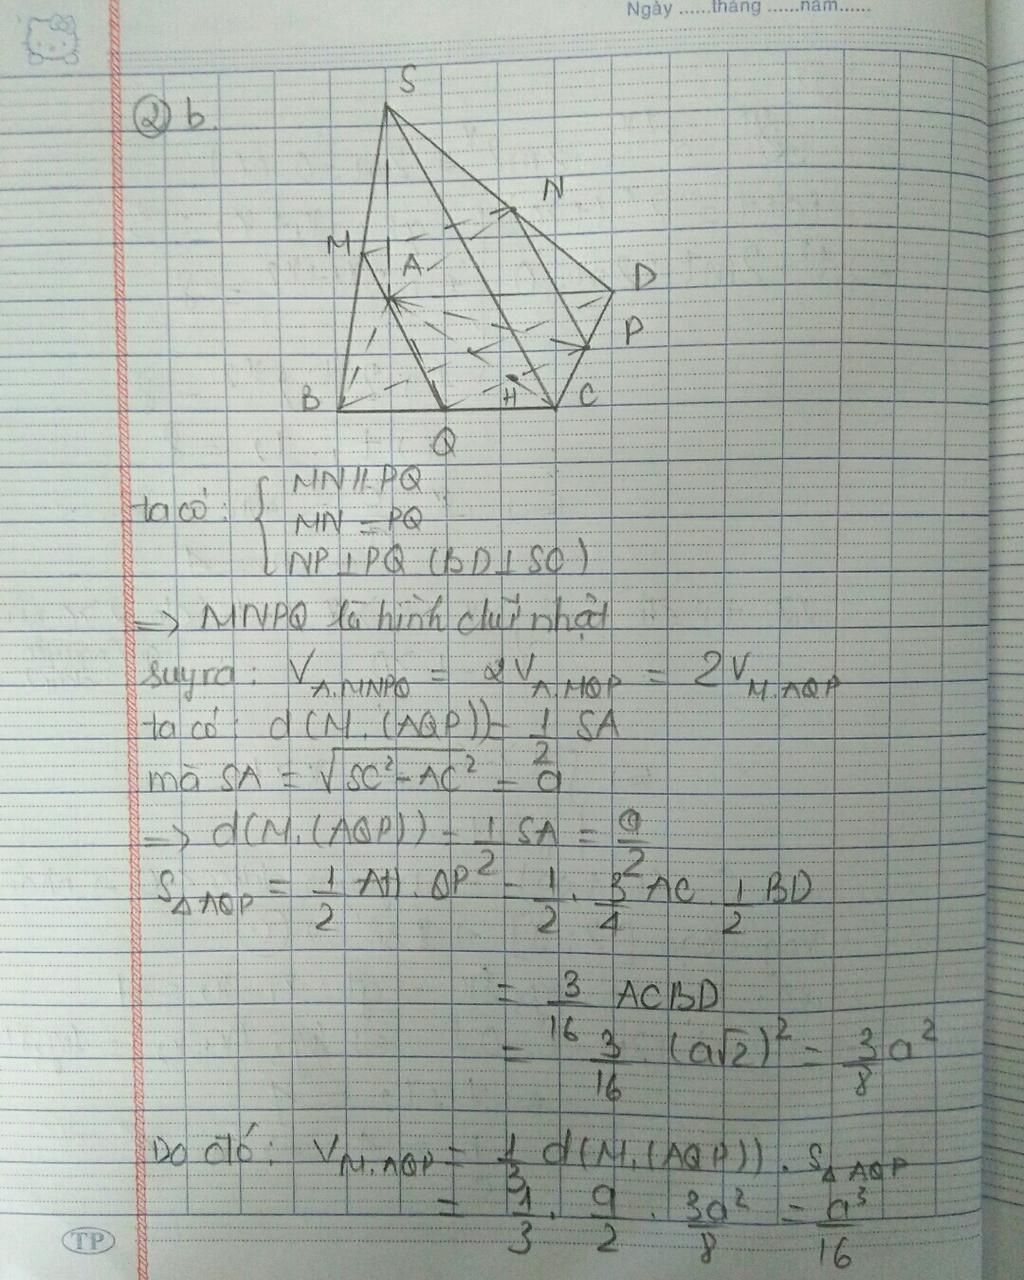 Ngày ......tháng ......năm......
② b.
S
N
M
A
D
P
B
H
C
Q
ta có: { MN // PQ
MN = PQ
NP ⊥ PQ (BD ⊥ SC)
=> MNPQ là hình chữ nhật
suy ra: V_{A.MNPQ} = 2V_{A.MQP} = 2V_{M.AQP}
ta có: d(M.(AQP)) = \frac{1}{2} SA
mà SA = \sqrt{SC^2 - AC^2} = a
=> d(M.(AQP)) = \frac{1}{2} SA = \frac{a}{2}
S_{ΔAQP} = \frac{1}{2} AH . QP = \frac{1}{2} . \frac{3}{4} AC . \frac{1}{2} BD
= \frac{3}{16} ACBD
= \frac{3}{16} . (a\sqrt{2})^2 = \frac{3}{8} a^2
Do đó: V_{M.AQP} = \frac{1}{3} d(M.(AQP)) . S_{ΔAQP}
= \frac{1}{3} . \frac{a}{2} . \frac{3a^2}{8} = \frac{a^3}{16}
TP